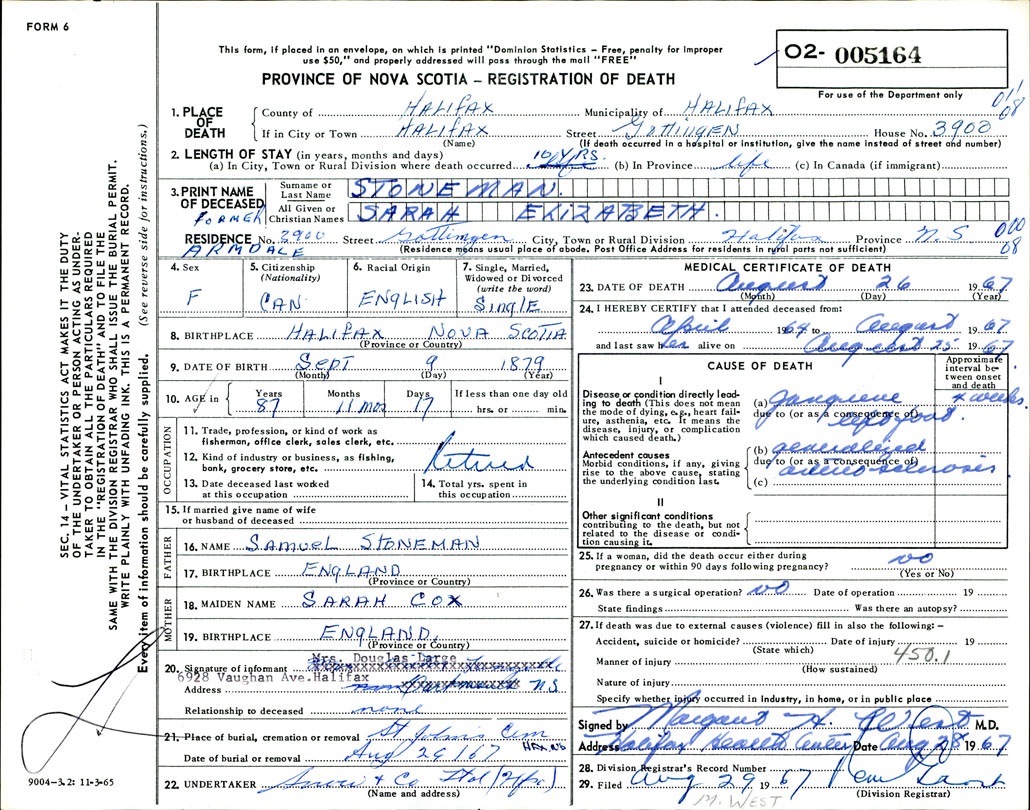 FORM 6
This form, if placed in an envelope, on which is printed "Dominion Statistics – Free, penalty for improper
use $50," and properly addressed will pass through the mail "FREE"
O2- 005164
For use of the Department only
PROVINCE OF NOVA SCOTIA – REGISTRATION OF DEATH
011
08
1. PLACE OF DEATH
County of HALIFAX Municipality of HALIFAX
If in City or Town HALIFAX Street Gottingen House No. 3900
(Name) (If death occurred in a hospital or institution, give the name instead of street and number)
2. LENGTH OF STAY (in years, months and days)
(a) In City, Town or Rural Division where death occurred 10 YRS. (b) In Province life (c) In Canada (if immigrant)
3. PRINT NAME OF DECEASED
Surname or Last Name STONEMAN.
All Given or Christian Names SARAH ELIZABETH.
FORMER
ARMDALE
RESIDENCE No. 3900 Street Gottingen City, Town or Rural Division Halifax Province N S
(Residence means usual place of abode. Post Office Address for residents in rural parts not sufficient)
000
08
4. Sex F
5. Citizenship (Nationality) CAN
6. Racial Origin ENGLISH
7. Single, Married, Widowed or Divorced (write the word) SinglE
8. BIRTHPLACE HALIFAX NOVA SCOTIA
(Province or Country)
9. DATE OF BIRTH SEPT 9 1879
(Month) (Day) (Year)
10. AGE in Years 87 Months 11 mos Days 17 If less than one day old hrs. or min.
OCCUPATION
11. Trade, profession, or kind of work as fisherman, office clerk, sales clerk, etc.
12. Kind of industry or business, as fishing, bank, grocery store, etc. Retired
13. Date deceased last worked at this occupation
14. Total yrs. spent in this occupation
15. If married give name of wife or husband of deceased
FATHER
16. NAME SAMUEL STONEMAN
17. BIRTHPLACE ENGLAND
(Province or Country)
MOTHER
18. MAIDEN NAME SARAH COX
19. BIRTHPLACE ENGLAND,
(Province or Country)
Mrs. Douglas Large
20. Signature of informant
6928 Vaughan Ave. Halifax
Address N.S
Relationship to deceased none
21. Place of burial, cremation or removal St John's Cem
Date of burial or removal Aug 29/67
22. UNDERTAKER Snow & Co Ltd (Hfx)
(Name and address)
MEDICAL CERTIFICATE OF DEATH
23. DATE OF DEATH August 26 1967
(Month) (Day) (Year)
24. I HEREBY CERTIFY that I attended deceased from:
April 1964 to August 1967
and last saw her alive on August 25 1967
CAUSE OF DEATH
Approximate interval between onset and death
I
Disease or condition directly leading to death (This does not mean the mode of dying, e.g., heart failure, asthenia, etc. It means the disease, injury, or complication which caused death.)
(a) gangrene weeks
due to (or as a consequence of) left foot.
Antecedent causes
Morbid conditions, if any, giving rise to the above cause, stating the underlying condition last.
(b) generalized
due to (or as a consequence of) arteriosclerosis
(c)
II
Other significant conditions contributing to the death, but not related to the disease or condition causing it.
25. If a woman, did the death occur either during pregnancy or within 90 days following pregnancy? no
(Yes or No)
26. Was there a surgical operation? no Date of operation 19
State findings Was there an autopsy?
27. If death was due to external causes (violence) fill in also the following: –
Accident, suicide or homicide? Date of injury 19
(State which)
450.1
Manner of injury
(How sustained)
Nature of injury
Specify whether injury occurred in industry, in home, or in public place
Signed by Margaret H. West M.D.
Address Halifax Health Center Date Aug 28 1967
28. Division Registrar's Record Number
29. Filed Aug 29 1967
(Division Registrar)
M. WEST
SEC. 14 – VITAL STATISTICS ACT MAKES IT THE DUTY
OF THE UNDERTAKER OR PERSON ACTING AS UNDER-
TAKER TO OBTAIN ALL THE PARTICULARS REQUIRED
IN THE "REGISTRATION OF DEATH" AND TO FILE THE
SAME WITH THE DIVISION REGISTRAR WHO SHALL ISSUE THE BURIAL PERMIT.
WRITE PLAINLY WITH UNFADING INK. THIS IS A PERMANENT RECORD.
Every item of information should be carefully supplied. (See reverse side for instructions.)
9004-3.2: 11-3-65